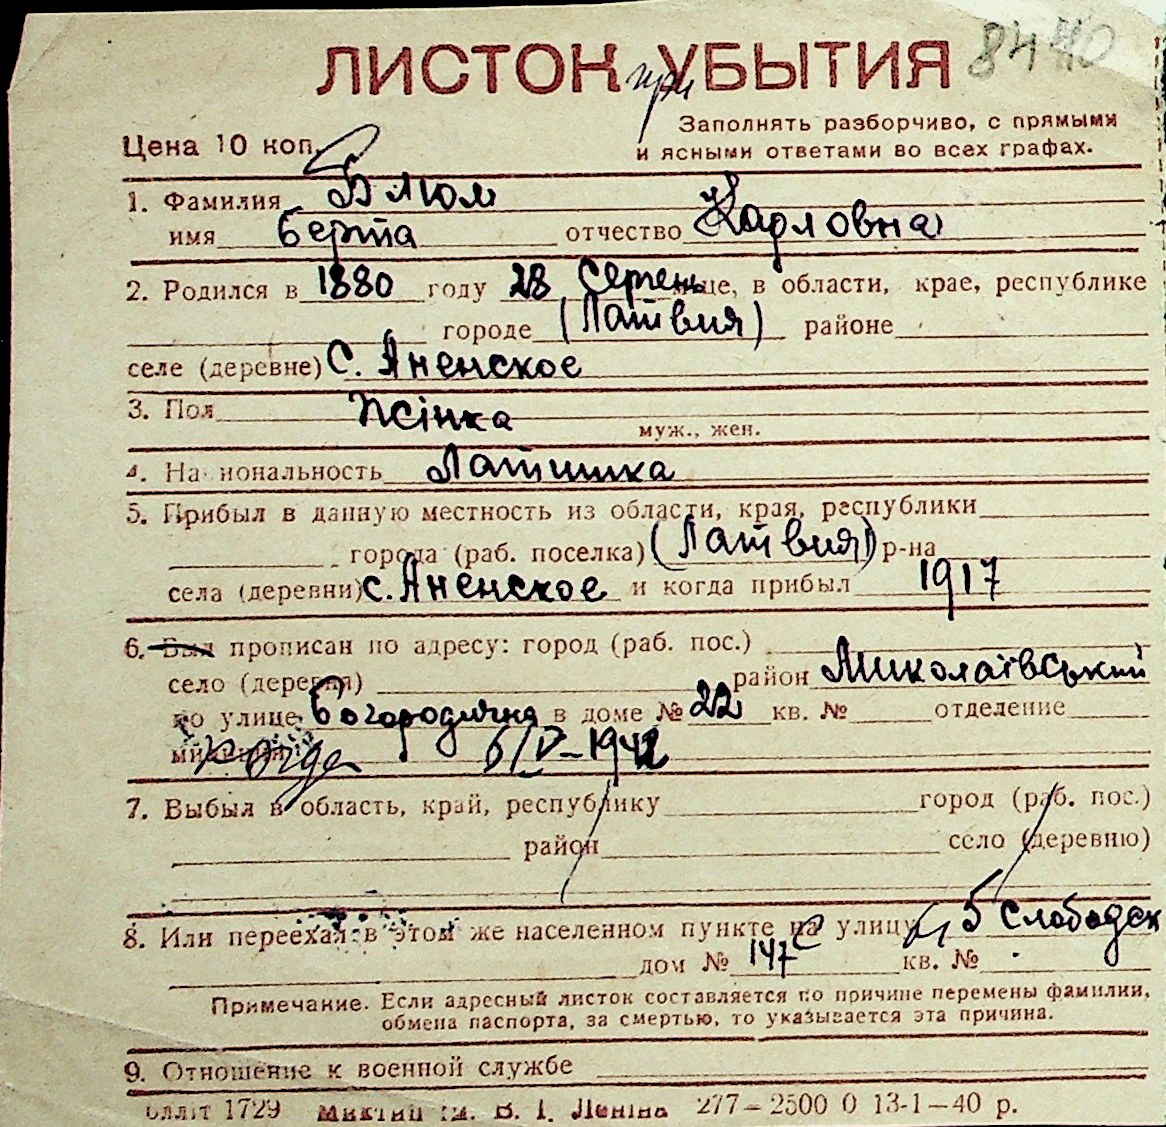 8440
ЛИСТОК при УБЫТИЯ
Заполнять разборчиво, с прямыми
и ясными ответами во всех графах.
Цена 10 коп.
1. Фамилия Блюм
имя Берта отчество Карловна
2. Родился в 1880 году 28 Серпень це, в области, крае, республике
городе (Латвия) районе
селе (деревне) С. Аненское
3. Пол Жінка
муж., жен.
4. На иональность Латишка
5. Прибыл в данную местность из области, края, республики
города (раб. поселка) (Латвия) р-на
села (деревни) с. Аненское и когда прибыл 1917
6. Был прописан по адресу: город (раб. пос.)
село (деревня) район Миколаївський
по улице Богородична в доме № 22 кв. № отделение
милиции когда 6/IV-1942
7. Выбыл в область, край, республику город (раб. пос.)
район село (деревню)
8. Или переехал в этом же населенном пункте на улицу 5 Слободск
дом № 147 кв. №
Примечание. Если адресный листок составляется по причине перемены фамилии,
обмена паспорта, за смертью, то указывается эта причина.
9. Отношение к военной службе
1729 В. І. Леніна 277—2500 0 13-1—40 р.